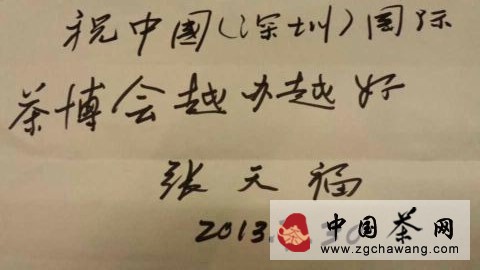 祝中國(深圳)国际
茶博会越办越好
张天福
2013.
中国茶网
www.zgchawang.com